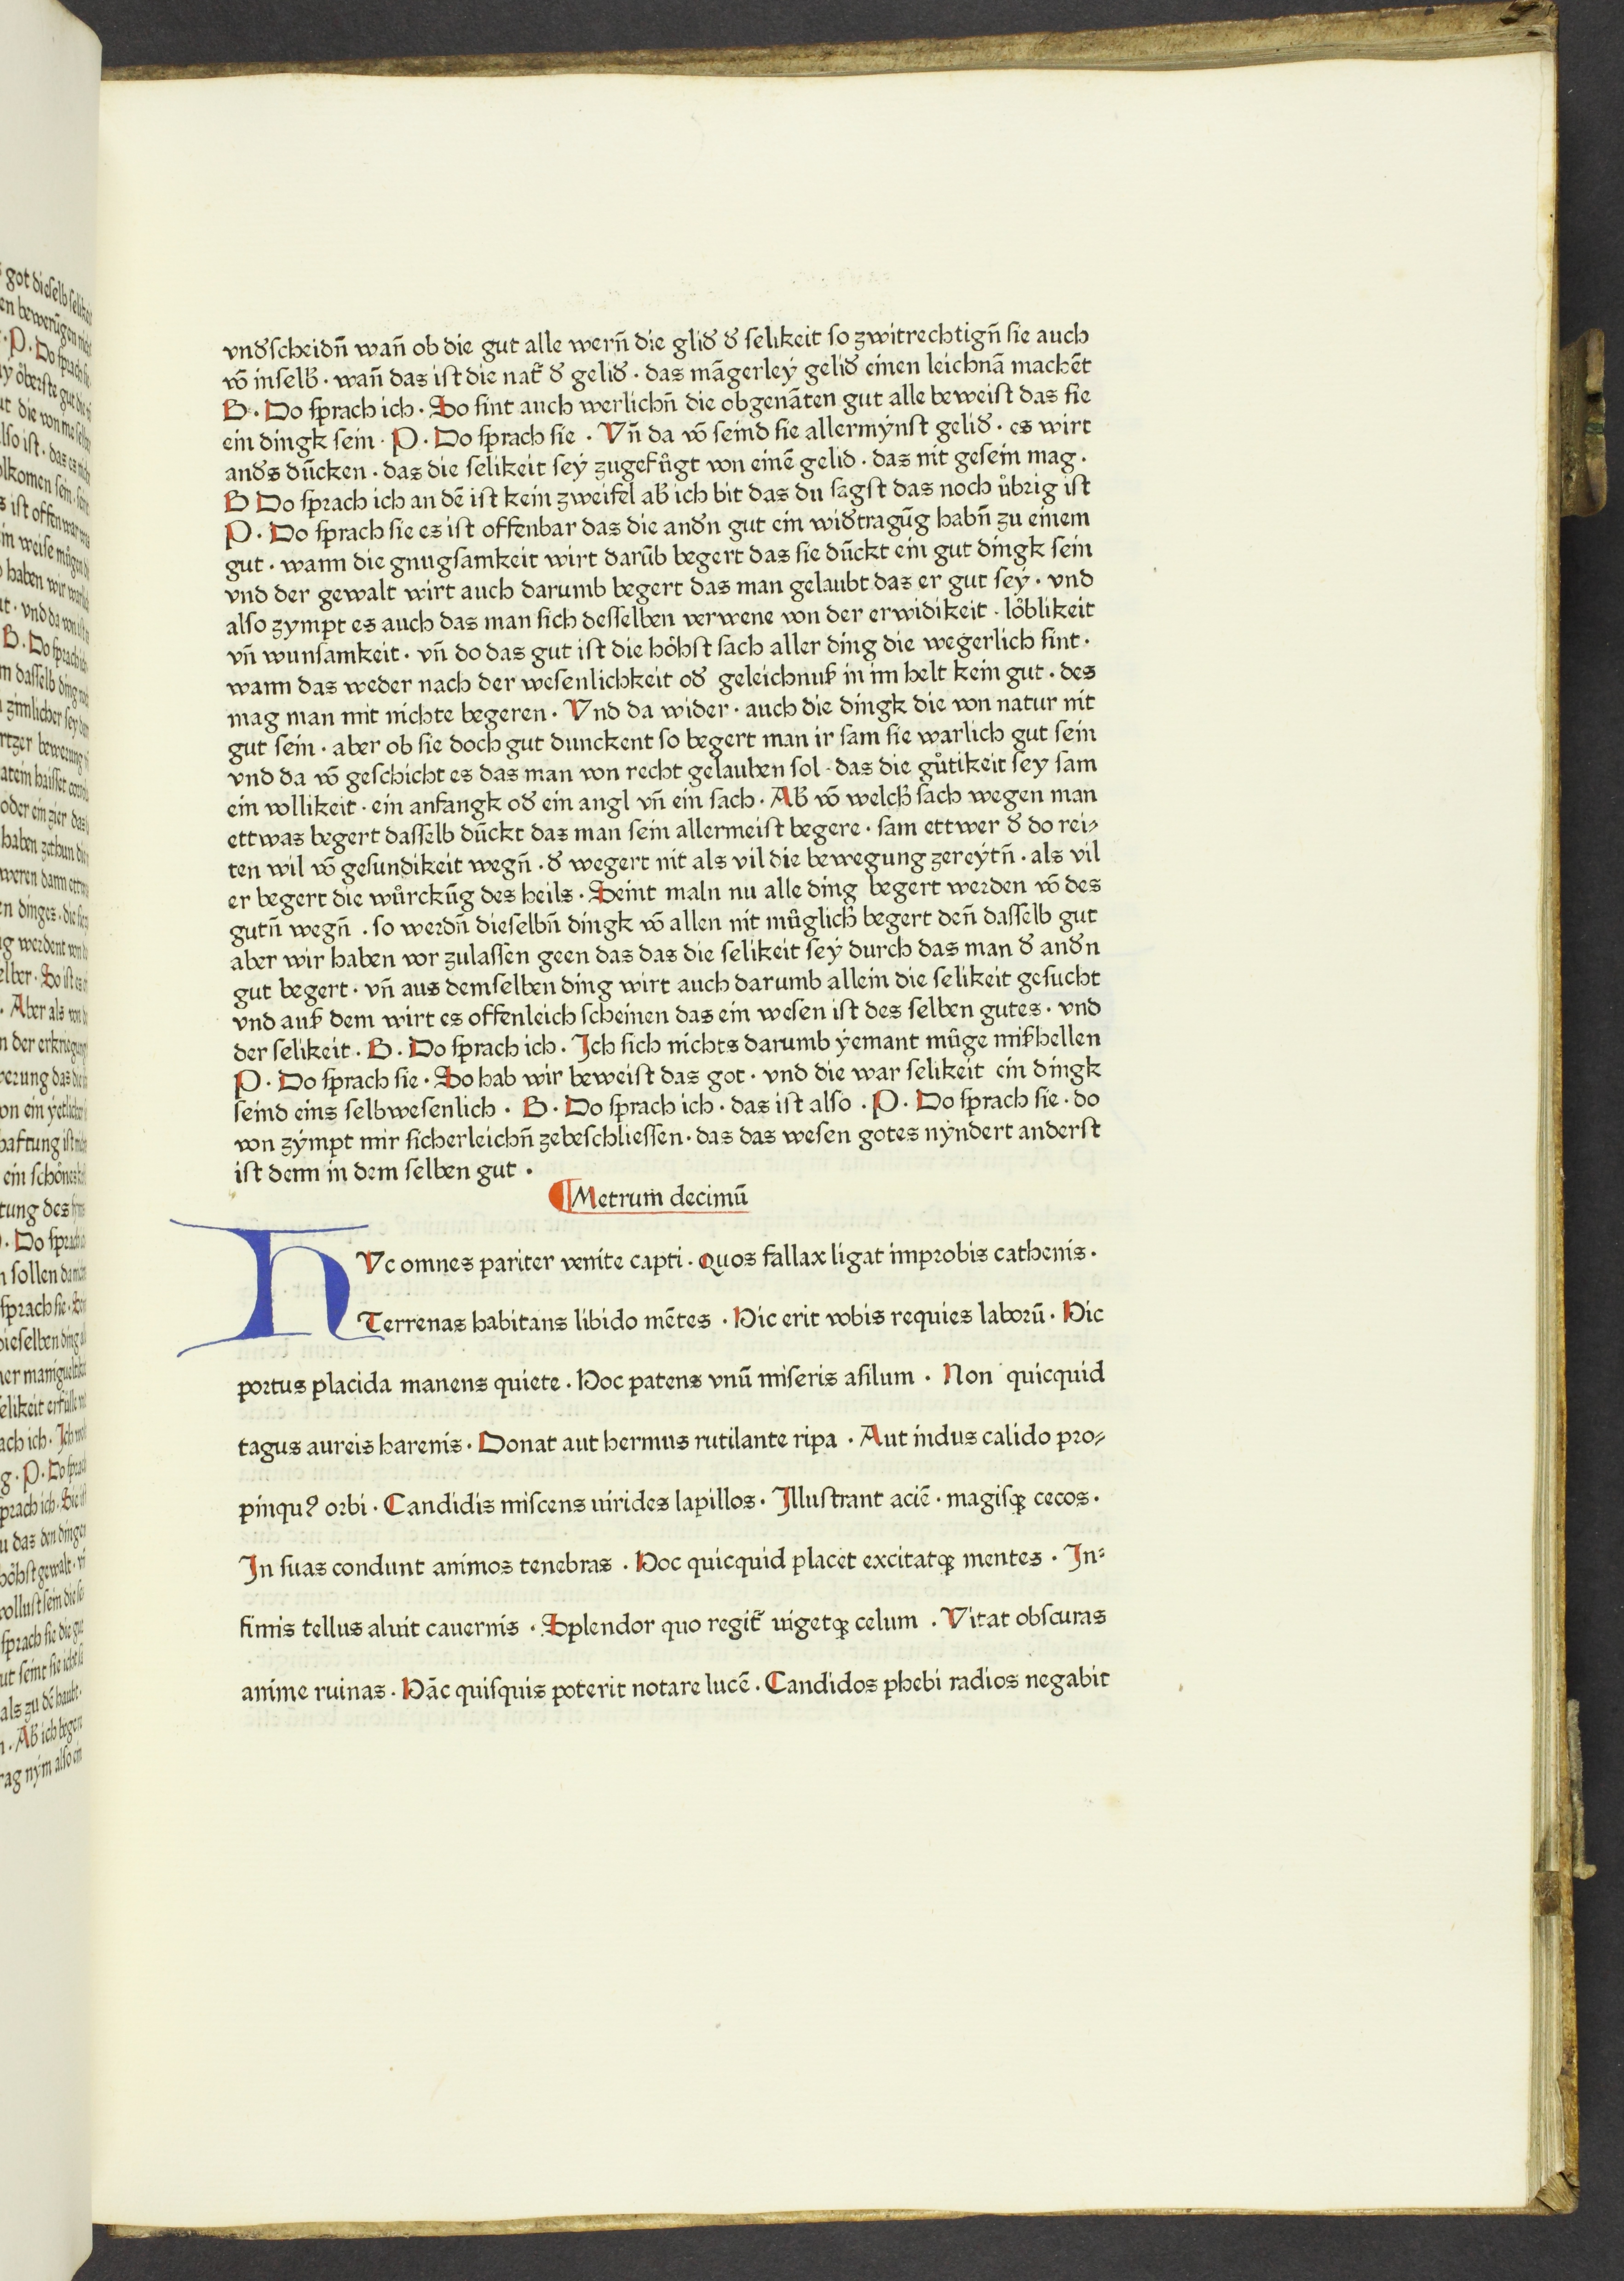 vnd̕scheidn̄ wan̄ ob die gut alle wern̄ die glid̕ d̕ selikeit so zwitrechtign̄ sie auch
vō inselb̕ · wan̄ das ist die nat̕ d̕ gelid̕ · das māgerleÿ gelid̕ einen leichnā machēt
B · Do sprach ich · So sint auch werlichn̄ die obgenāten gut alle beweist das sie
ein dingk sein · P · Do sprach sie · Vn̄ da vō seind sie allermÿnst gelid̕ · es wirt
and̕s dūcken · das die selikeit seÿ zugefůgt von einē gelid · das nit gesein mag ·
B Do sprach ich an dē ist kein zweifel ab̕ ich bit das du sagst das noch ůbrig ist
P · Do sprach sie es ist offenbar das die and̕n gut ein wid̕tragūg habn̄ zu einem
gut · wann die gnugsamkeit wirt darūb begert das sie dūckt ein gut dingk sein
vnd der gewalt wirt auch darumb begert das man gelaubt das er gut seÿ · vnd
also zympt es auch das man sich desselben verwene von der erwidikeit · lo̊blikeit
vn̄ wunsamkeit · vn̄ do das gut ist die ho̊hst sach aller ding die wegerlich sint ·
wann das weder nach der wesenlichkeit od̕ geleichnuß in im helt kein gut · des
mag man mit nichte begeren · Vnd da wider · auch die dingk die von natur nit
gut sein · aber ob sie doch gut dunckent so begert man ir sam sie warlich gut sein
vnd da vō geschicht es das man von recht gelauben sol · das die gůtikeit sey sam
ein vollikeit · ein anfangk od̕ ein angl vn̄ ein sach · Ab̕ vō welch̕ sach wegen man
ettwas begert dasselb dūckt das man sein allermeist begere · sam ettwer d̕ do rei⸗
ten wil vō gesundikeit wegn̄ · d̕ wegert nit als vil die bewegung zereÿtn̄ · als vil
er begert die wůrckūg des heils · Seint maln nu alle ding begert werden vō des
gutn̄ wegn̄ · so werdn̄ dieselbn̄ dingk vō allen nit můglich̕ begert den̄ dasselb gut
aber wir haben vor zulassen geen das das die selikeit seÿ durch das man d̕ and̕n
gut begert · vn̄ aus demselben ding wirt auch darumb allein die selikeit gesucht
vnd auß dem wirt es offenleich scheinen das ein wesen ist des selben gutes · vnd
der selikeit · B · Do sprach ich · Ich sich nichts darumb ÿemant můge mißhellen
P · Do sprach sie · So hab wir beweist das got · vnd die war selikeit ein dingk
seind eins selbwesenlich · B · Do sprach ich · das ist also · P · Do sprach sie · do
von zÿmpt mir sicherleichn̄ zebeschliessen · das das wesen gotes nÿndert anderst
ist denn in dem selben gut ·
¶Metrum decimū
HVc omnes pariter venite capti · Quos fallax ligat improbis cathenis ·
Terrenas habitans libido mētes · Hic erit vobis requies laborū · Hic
portus placida manens quiete · Hoc patens vnū miseris asilum · Non quicquid
tagus aureis harenis · Donat aut hermus rutilante ripa · Aut indus calido pro⸗
pinquꝰ orbi · Candidis miscens uirides lapillos · Illustrant aciē · magisqꝫ cecos ·
In suas condunt animos tenebras · Hoc quicquid placet excitatqꝫ mentes · In⸗
fimis tellus aluit cauernis · Splendor quo regit̕ uigetqꝫ celum · Vitat obscuras
anime ruinas · Hāc quisquis poterit notare lucē · Candidos phebi radios negabit